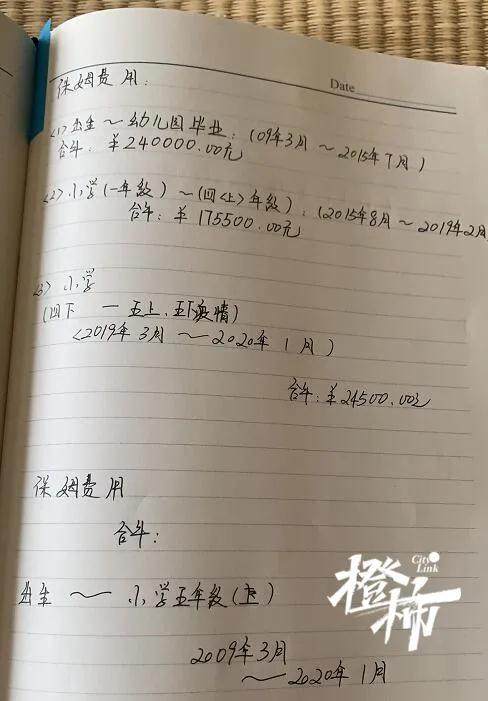 Date
保姆费用:
<1>出生～幼儿园毕业:(09年3月～2015年7月)
合计:¥240000.00元
<2>小学(一年级)～(四<上>年级):(2015年8月～2019年2月
合计:¥175500.00元
<3>小学
(四下—五上.五下疫情)
<2019年3月～2020年1月)
合计:¥24500.00元
保姆费用
合计:
出生～小学五年级(上)
2009年3月
～2020年1月
City Link
橙柿